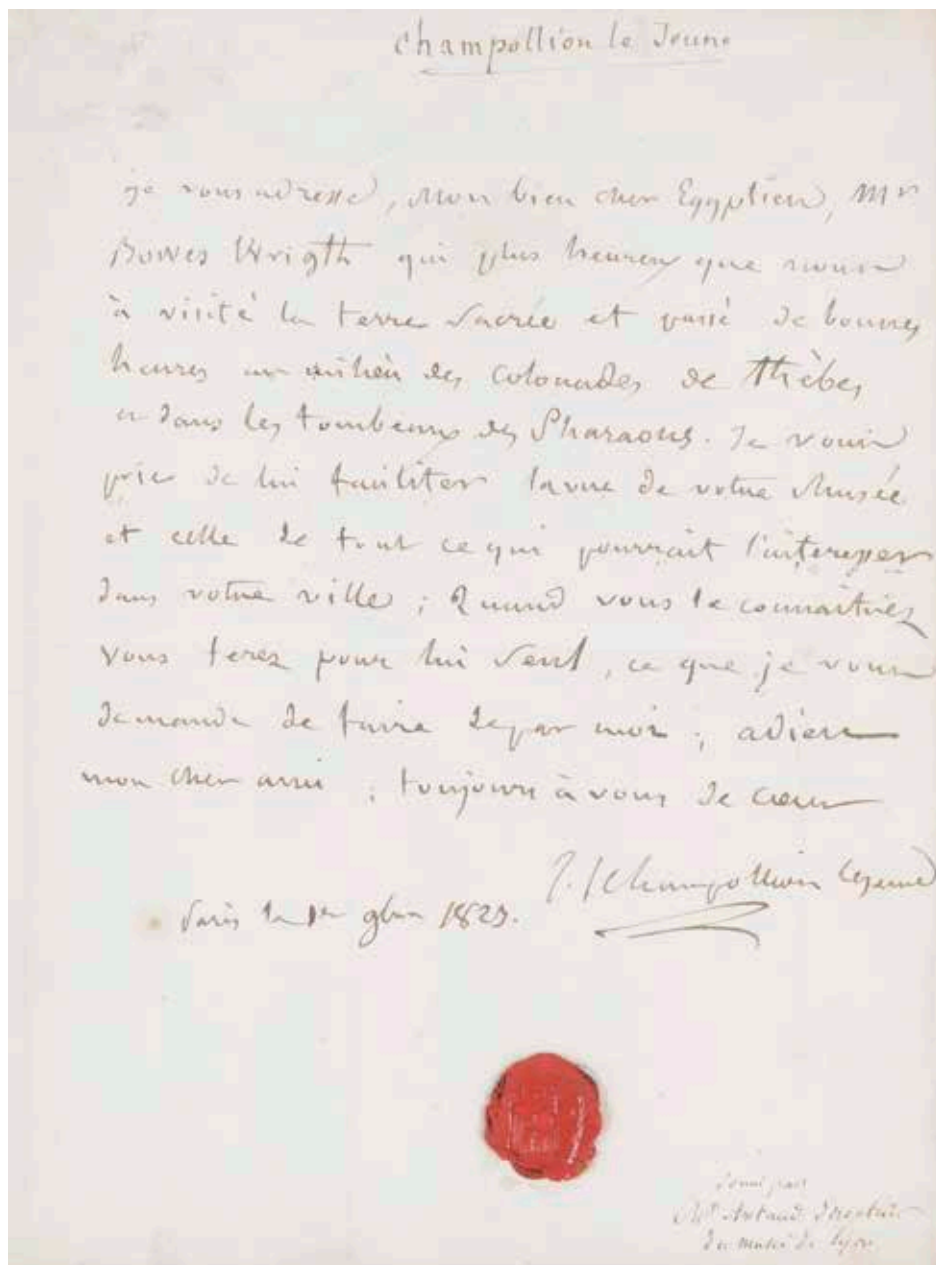 Champollion le Jeune
je vous adresse, Mon bien cher Egyptien, Mr
Bowes Wrigth qui plus heureux que nous
à visité la terre Sacrée et passé de bonnes
heures au milieu des colonades de thèbes
et dans les tombeaux des Pharaons. Je vous
prie de lui faciliter la vue de votre Musée
et celle de tout ce qui pourrait l'interesser
dans votre ville ; Quand vous le connaitrez
vous ferez pour lui Seul, ce que je vous
demande de faire de par moi ; adieu
mon cher ami ; toujours à vous de cœur
J. f Champollion le jeune
Paris le 1er 9bre 1823.
Donné par
Mr Artaud Directeur
du musée de lyon